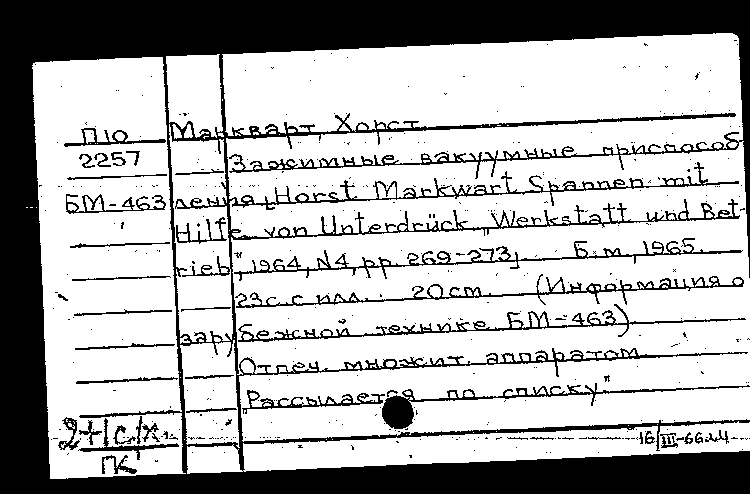 П10 Маркварт, Хорст
2257 Зажимные вакуумные приспособ-
БМ-463 ления [Horst Markwart Spannen mit
Hilfe von Unterdrück „Werkstatt und Bet-
rieb", 1964, N4, pp. 269-273] Б.м., 1965.
23с. с илл. 20см. (Информация о
зарубежной технике БМ-463)
Отпеч. множит. аппаратом
"Рассылается по списку"
2+1с/х.
ПК
16/III-66